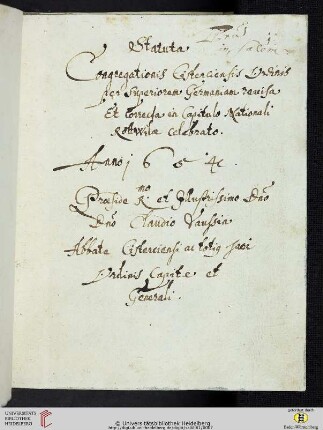 Statuta
Congregationis Cisterciensis Ordinis
per Superiorem Germaniam revisa
Et correcta in Capitulo Nationali
Rotwilae celebrato.
Anno 1654.
Praeside R.mo et Illustrissimo Dno
Dno Claudio Vaussin
Abbate Cisterciensi ac totiq sacri
Ordinis Capite et
Generali.
UNIVERSITÄTS-
BIBLIOTHEK
HEIDELBERG
© Universitätsbibliothek Heidelberg
Baden-Württemberg